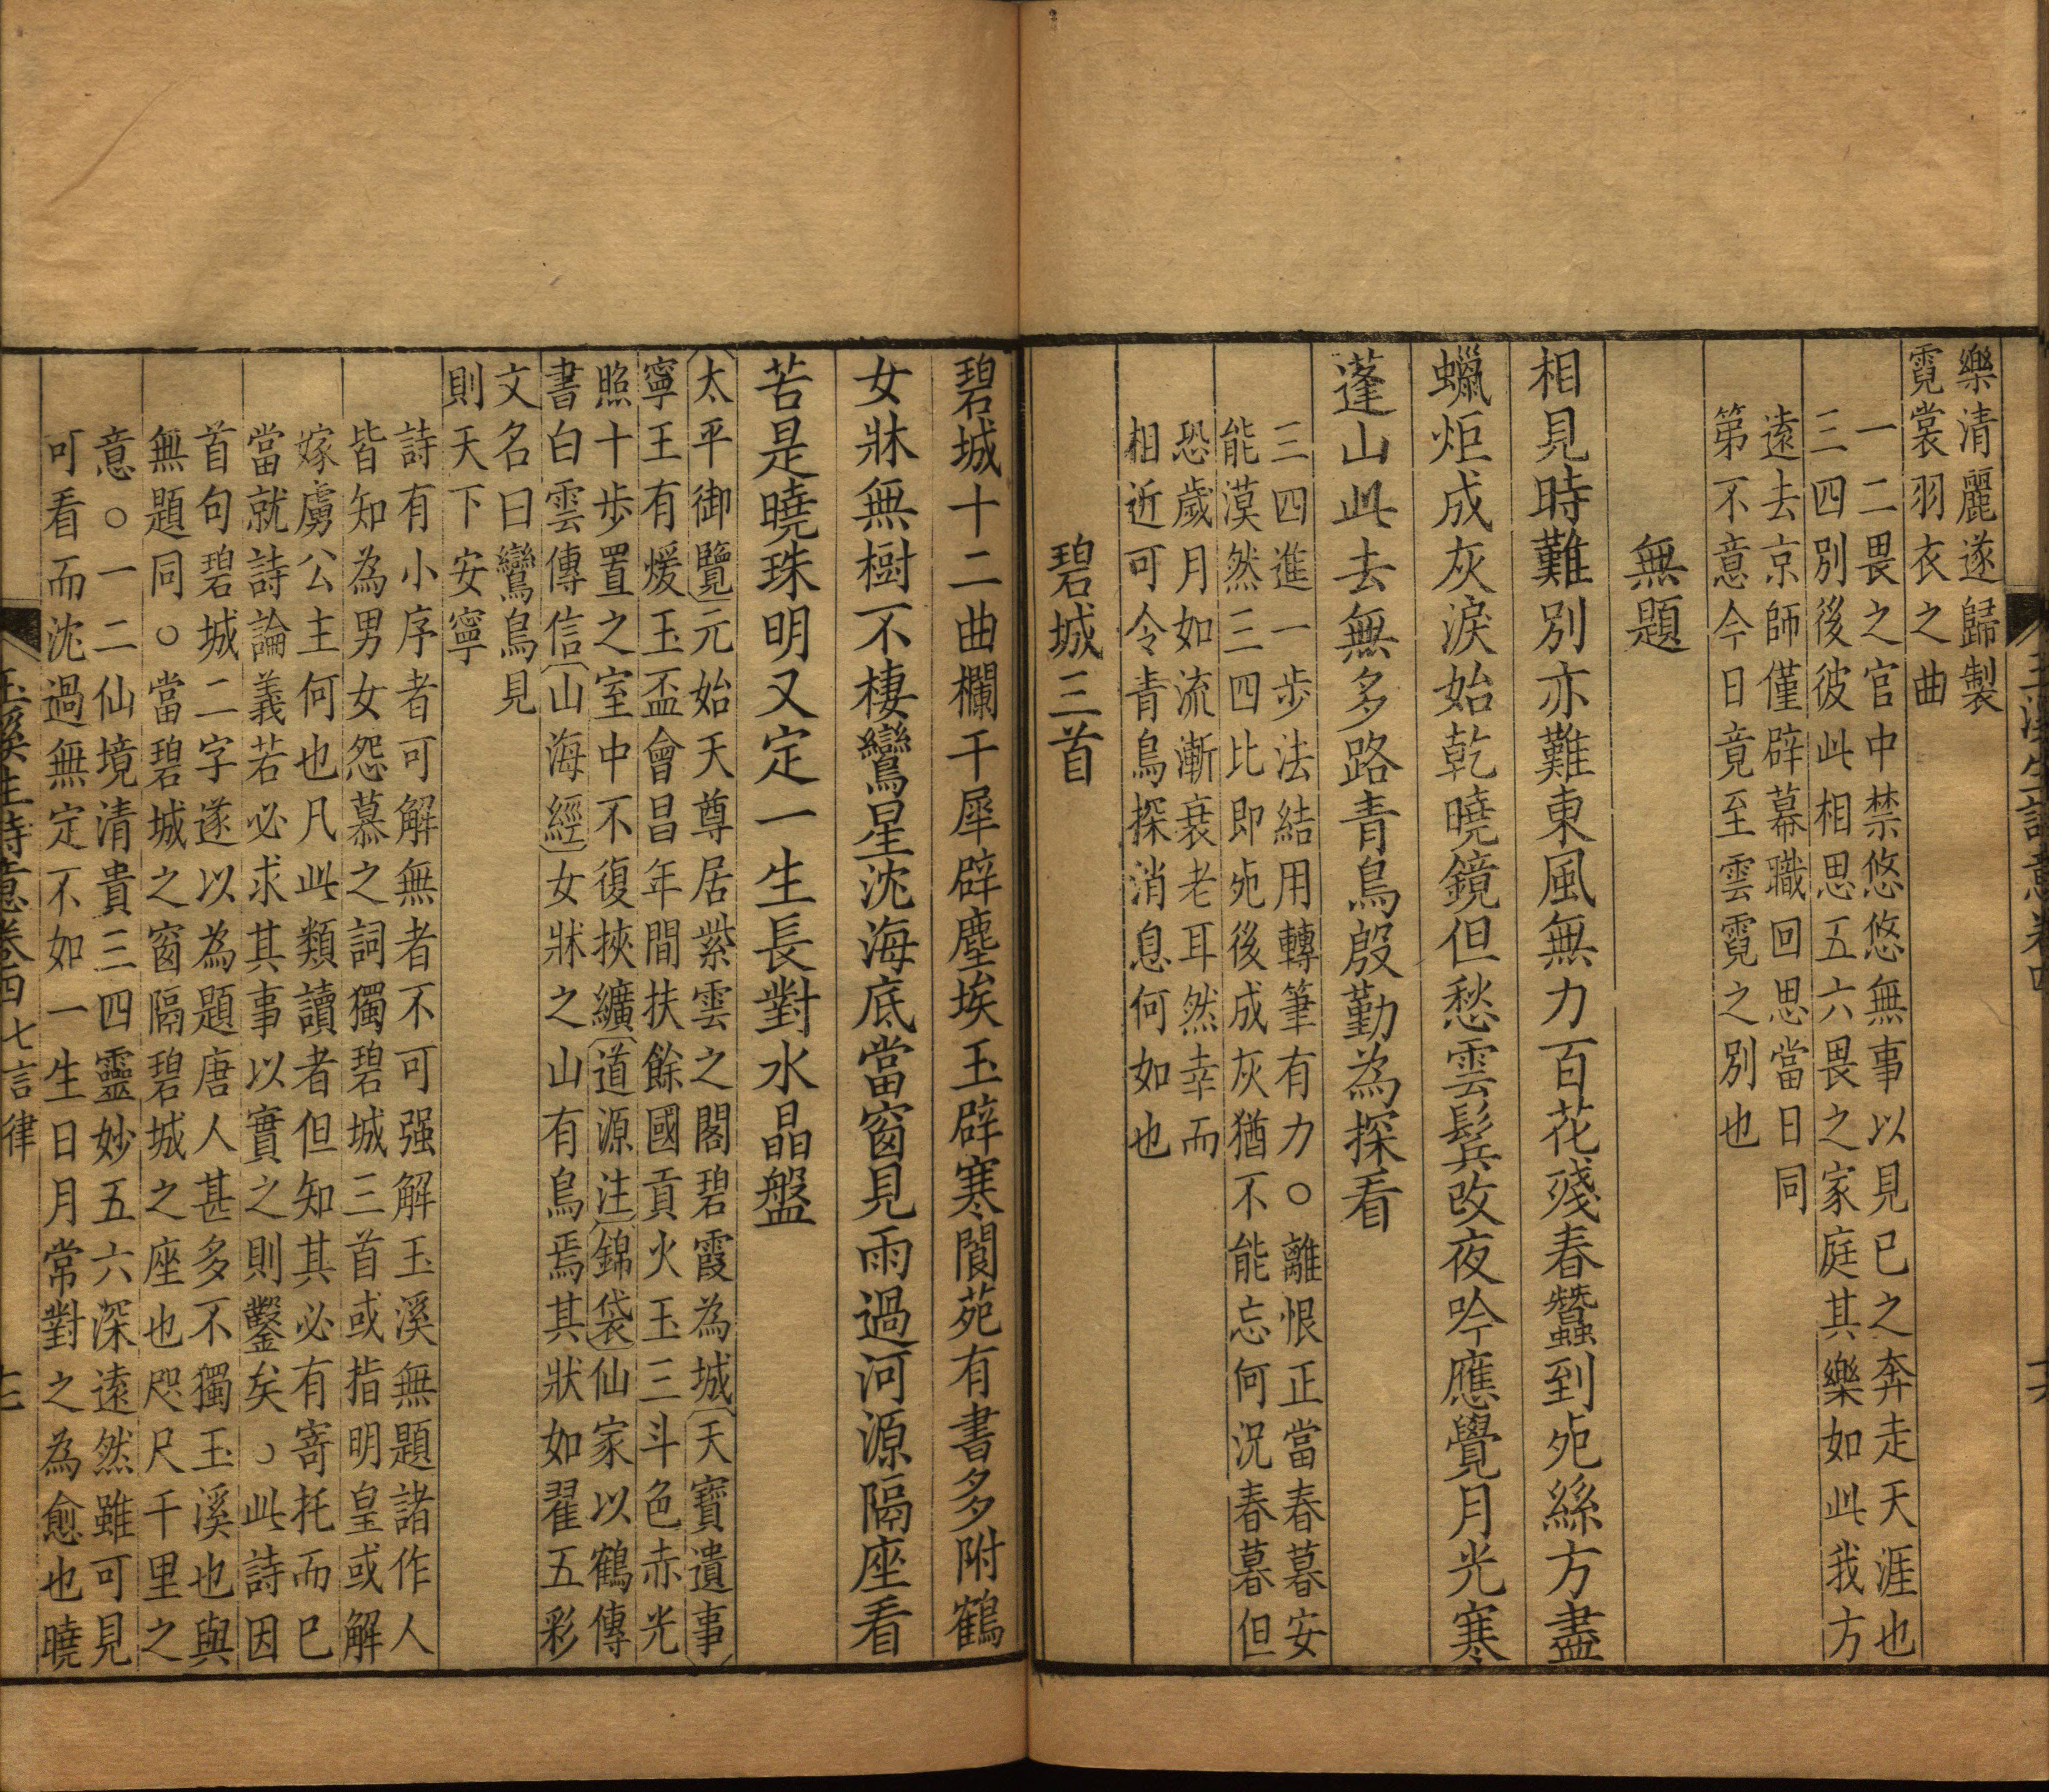 樂清麗遂歸製
霓裳羽衣之曲
一二畏之官中禁悠悠無事以見已之奔走天涯也
三四別後彼此相思五六畏之家庭其樂如此我方
遠去京師僅辟幕職回思當日同
第不意今日竟至雲霓之別也
無題
相見時難別亦難東風無力百花殘春蠶到死絲方盡
蠟炬成灰淚始乾曉鏡但愁雲鬢改夜吟應覺月光寒
蓬山此去無多路青鳥殷勤為探看
三四進一步法結用轉筆有力○離恨正當春暮安
能漠然三四比即死後成灰猶不能忘何況春暮但
恐歲月如流漸衰老耳然幸而
相近可令青鳥探消息何如也
碧城三首
碧城十二曲欄干犀辟塵埃玉辟寒閬苑有書多附鶴
女牀無樹不棲鸞星沈海底當窗見雨過河源隔座看
苦是曉珠明又定一生長對水晶盤
〔太平御覽〕元始天尊居紫雲之閣碧霞為城〔天寶遺事〕
寧王有煖玉盃會昌年間扶餘國貢火玉三斗色赤光
照十步置之室中不復挾纊〔道源注〕〔錦袋〕仙家以鶴傳
書白雲傳信〔山海經〕女牀之山有鳥焉其狀如翟五彩
文名曰鸞鳥見
則天下安寧
詩有小序者可解無者不可强解玉溪無題諸作人
皆知為男女怨慕之詞獨碧城三首或指明皇或解
嫁虜公主何也凡此類讀者但知其必有寄托而已
當就詩論義若必求其事以實之則鑿矣○此詩因
首句碧城二字遂以為題唐人甚多不獨玉溪也與
無題同○當碧城之窗隔碧城之座也咫尺千里之
意○一二仙境清貴三四靈妙五六深遠然雖可見
可看而沈過無定不如一生日月常對之為愈也曉
玉溪生詩意卷四 七言律